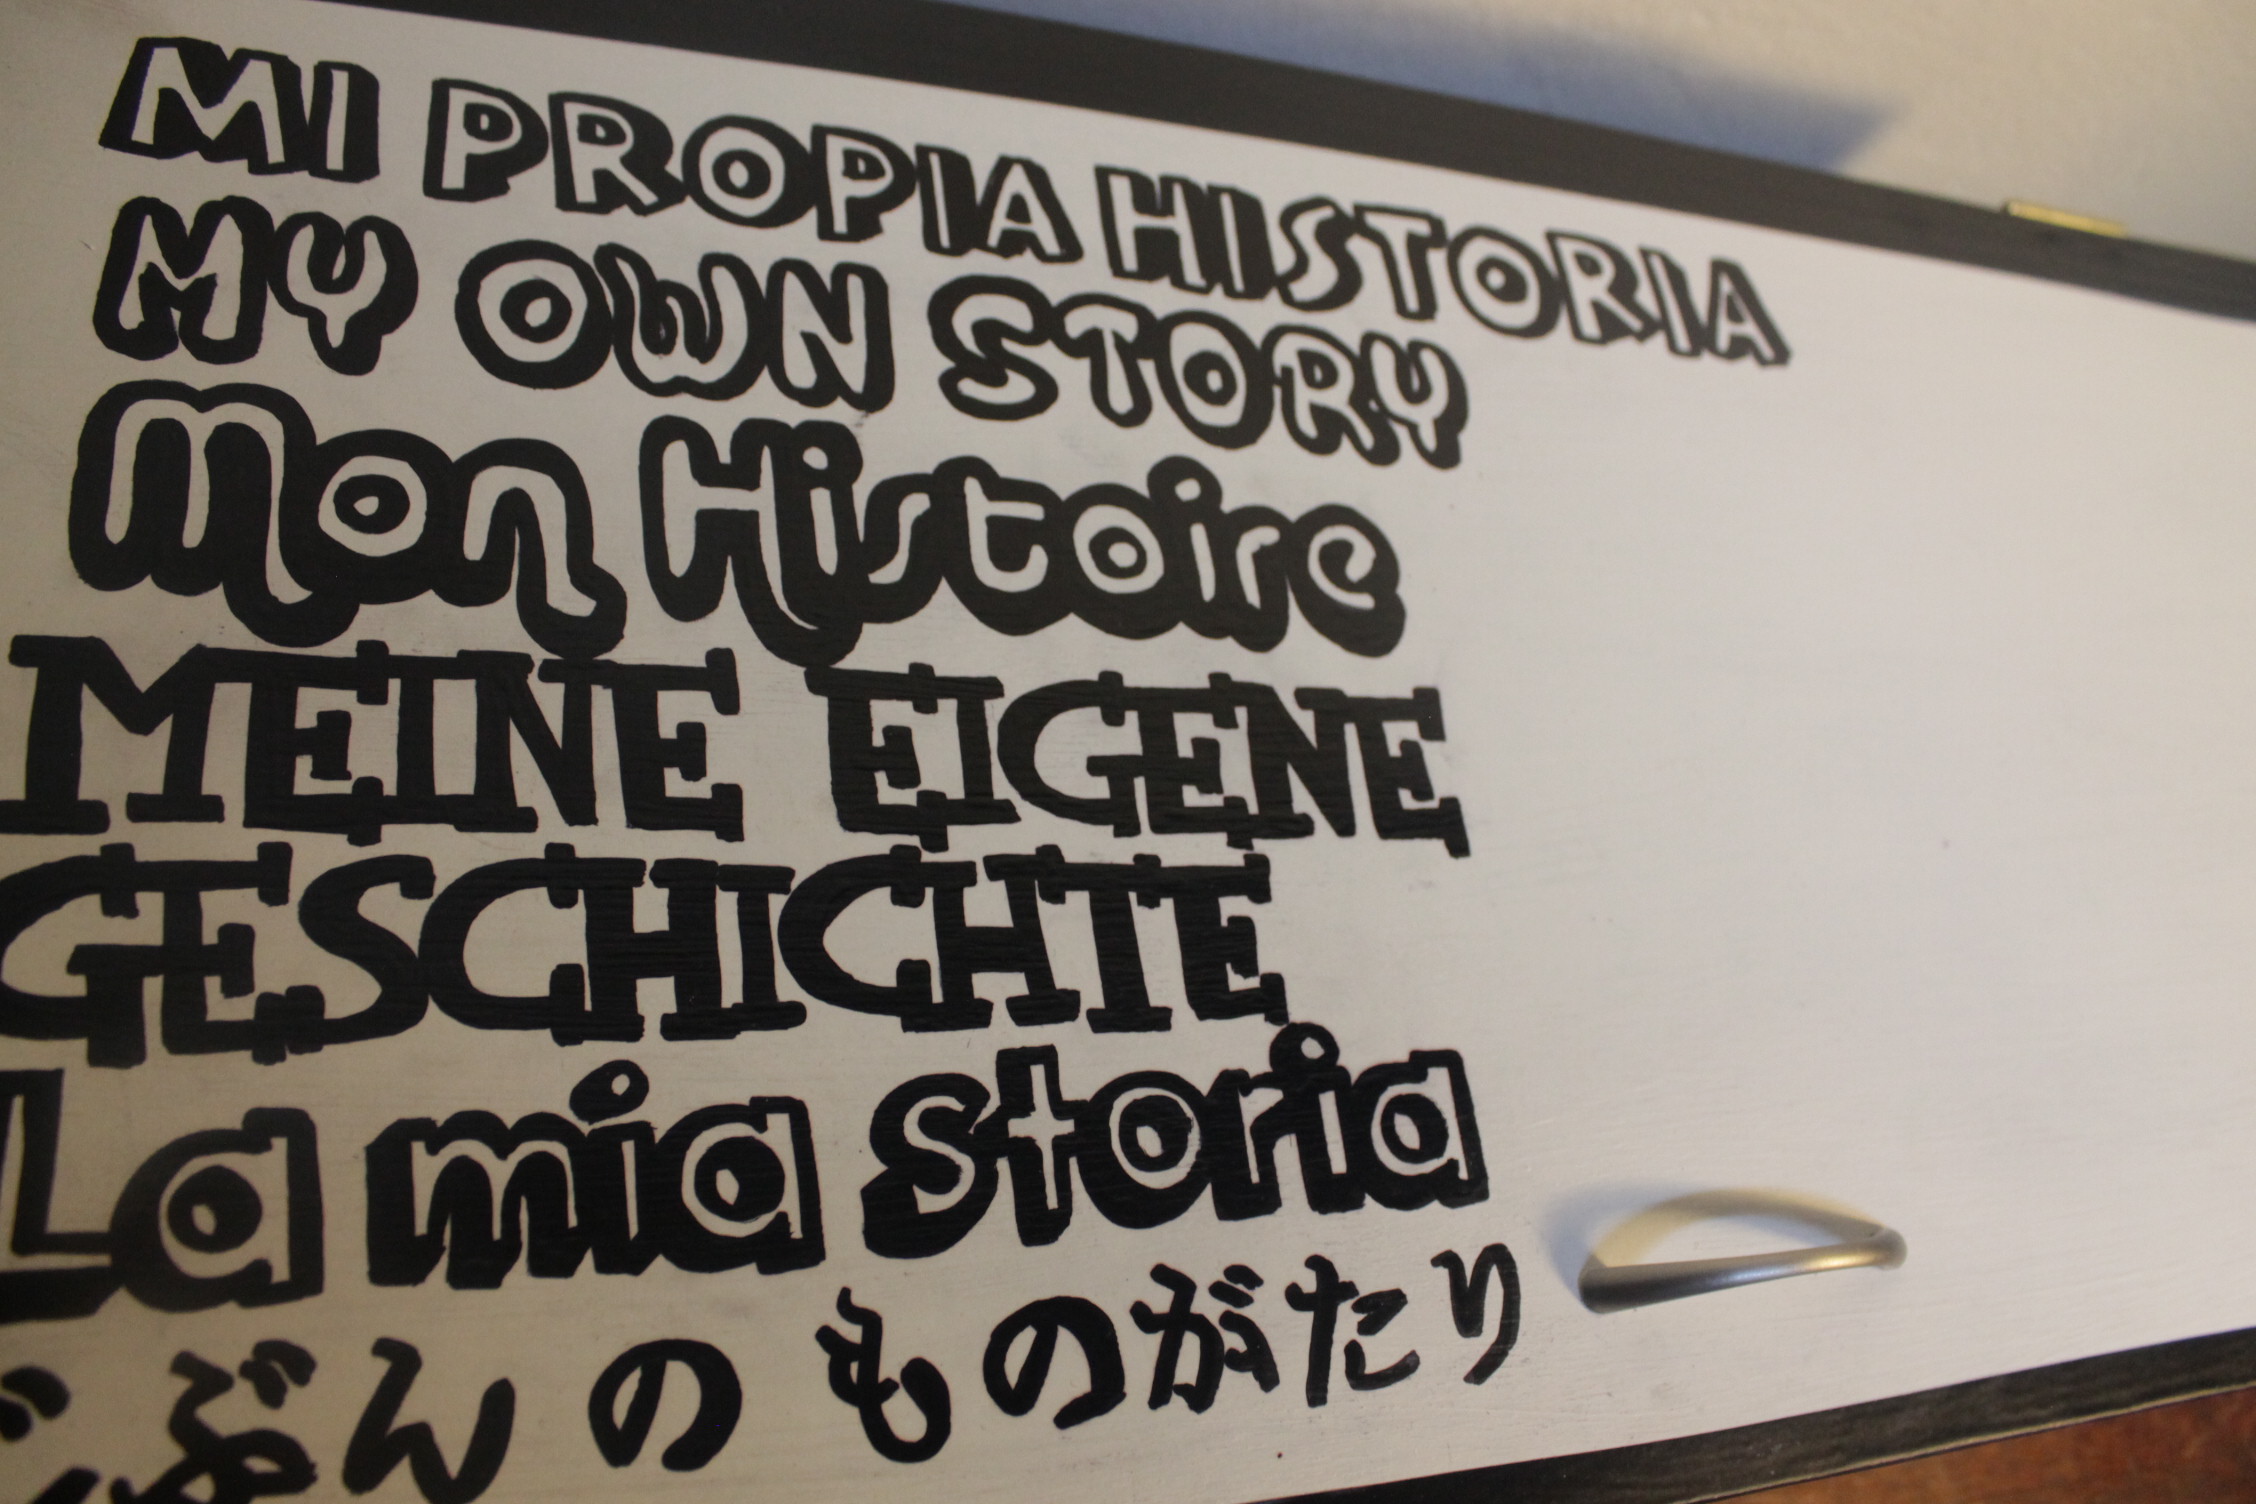 MI PROPIA HISTORIA
MY OWN STORY
Mon Histoire
MEINE EIGENE
GESCHICHTE
La mia storia
じぶん の ものがたり